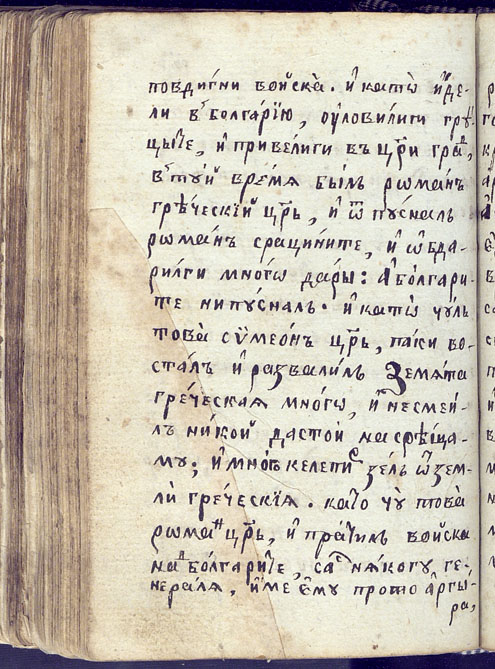 повдигни войскà. и҆ катѡ̀ и҆́де-
ли въ болга́рїю, ѹ҆ловилиги гръ-
цыте, и҆ привели́ги въ цр҃и гра̑д,
въ туй вре́мѧ былъ рѡма́нъ
грѣ́ческїй цр҃ь, и҆ ѿпусналъ
рѡма́нъ срацините, и҆ ѡ҆бда-
рилги мно́гѡ да́ры: а҆ болгари-
те нипуснáлъ. и҆ катѡ̀ чꙋлъ
товà сѷмеѡ́нъ цр҃ь, па́ки во-
ста́лъ и҆ развали́лъ земѧ́та
гре́ческая мно́гѡ, и҆ несмеи́-
лъ ни́кой дастои́ насрѣ́ща-
мꙋ; и҆ мно́гѡ келепи́р зе́лъ ѿ зем-
лѝ гре́ческїѧ. като чꙋ това
рѡма́н цр҃ь, и҆ пра́тилъ войска
на бо́лгарите, сас нѧкогу ге-
нералѧ, и҆́ме є҆мꙋ прото а҆ргы-
ра,